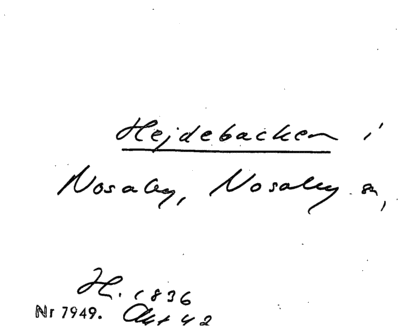 Hejdebacken i
Nosaby, Nosaby sn,
H. 1836
Nr 7949. Akt 42